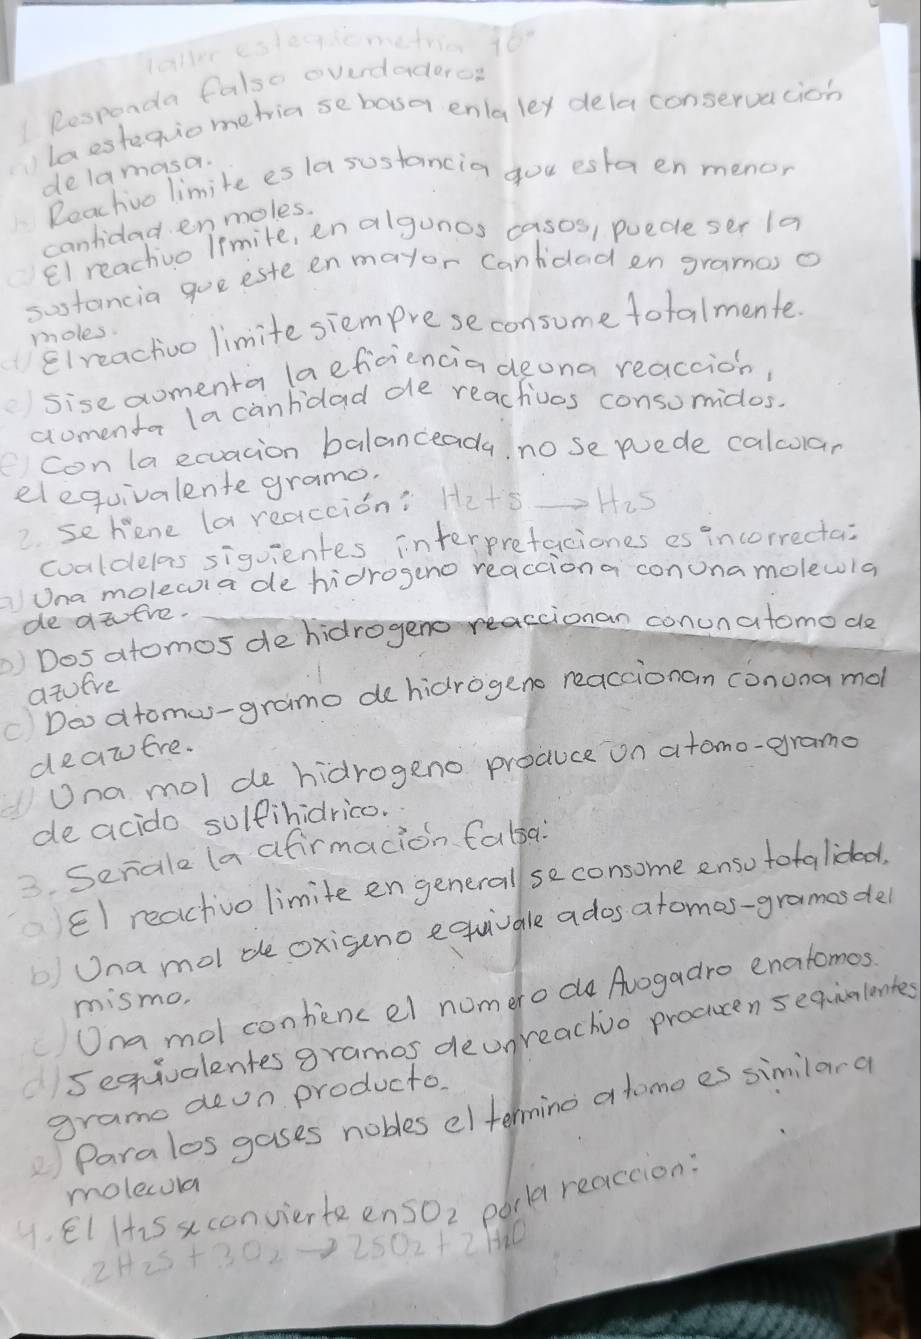 Taller estequiometria 10°
1 Responda falso overdadero:
a) la estequiometria se basa enla ley dela conservación
de la masa.
b Reactivo limite es la sustancia que esta en menor
cantidad en moles.
c) El reactivo limite, en algunos casos, puede ser la
sustancia que este en mayor cantidad en gramos o
moles.
d) El reactivo limite siempre se consume totalmente.
e) si se aumenta la eficiencia deuna reacción,
aumenta la cantidad de reactivos consumidos.
e) con la ecuacion balanceada, no se puede calcular
el equivalente gramo.
2. se tiene la reacción: H2+S → H2S
cualdelas siguientes interpretaciones es incorrecta:
a) Una molecula de hidrogeno reacciona conuna molecula
de azufre.
b) Dos atomos de hidrogeno reaccionan conunatomo de
azufre
c) Dos atomos-gramo de hidrogeno reaccionan conuna mol
deazufre.
d) Una mol de hidrogeno produce un atomo-gramo
de acido sulfihidrico.
3. Señale la afirmación falsa:
a) El reactivo limite en general se consume ensu totalidad.
b) Una mol de oxigeno equivale ados atomos-gramos del
mismo.
c) Una mol contiene el numero de Avogadro enatomos.
d) 5 equivalentes gramos deunreactivo producen 5 equivalentes
gramo deun producto.
e) Para los gases nobles el termino atomo es similar a
molecula
4. El H2S se convierte en SO2 porla reaccion:
2H2S + 3O2 → 2SO2 + 2H2O